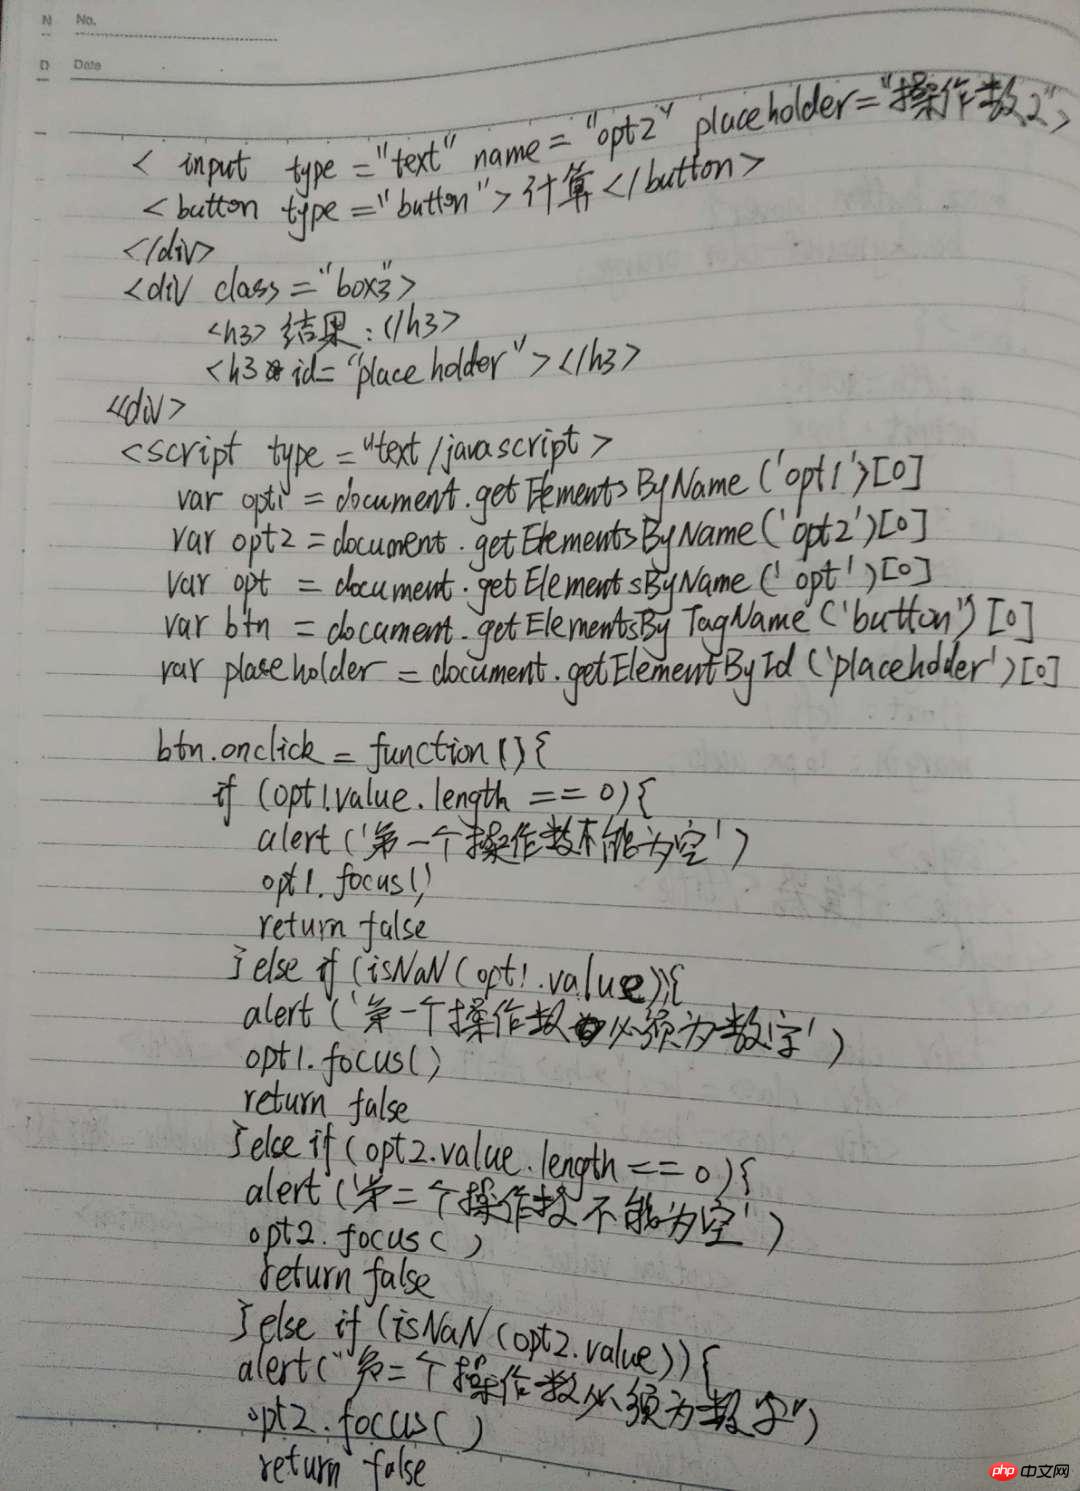 N No.
D Date
< input type ="text" name = "opt2" placeholder="操作数2">
<button type ="button">计算</button>
</div>
<div class ="box3>
<h3>结果:</h3>
<h3 id="placeholder"></h3>
<div>
<script type ="text/javascript>
var opt1 = document.getElementsByName('opt1')[0]
var opt2 = document.getElementsByName('opt2')[0]
var opt = document.getElementsByName('opt')[0]
var btn = document.getElementsByTagName('button')[0]
var plaseholder = document.getElementById('placeholder')[0]
btn.onclick = function(){
if (opt1.value.length == 0){
alert('第一个操作数不能为空')
opt1.focus()
return false
}else if (isNaN(opt1.value){
alert('第一个操作数必须为数字')
opt1.focus()
return false
}else if(opt2.value.length == 0){
alert('第二个操作数不能为空')
opt2.focus()
return false
}else if (isNaN(opt2.value)){
alert("第二个操作数必须为数字")
opt2.focus()
return false
php 中文网